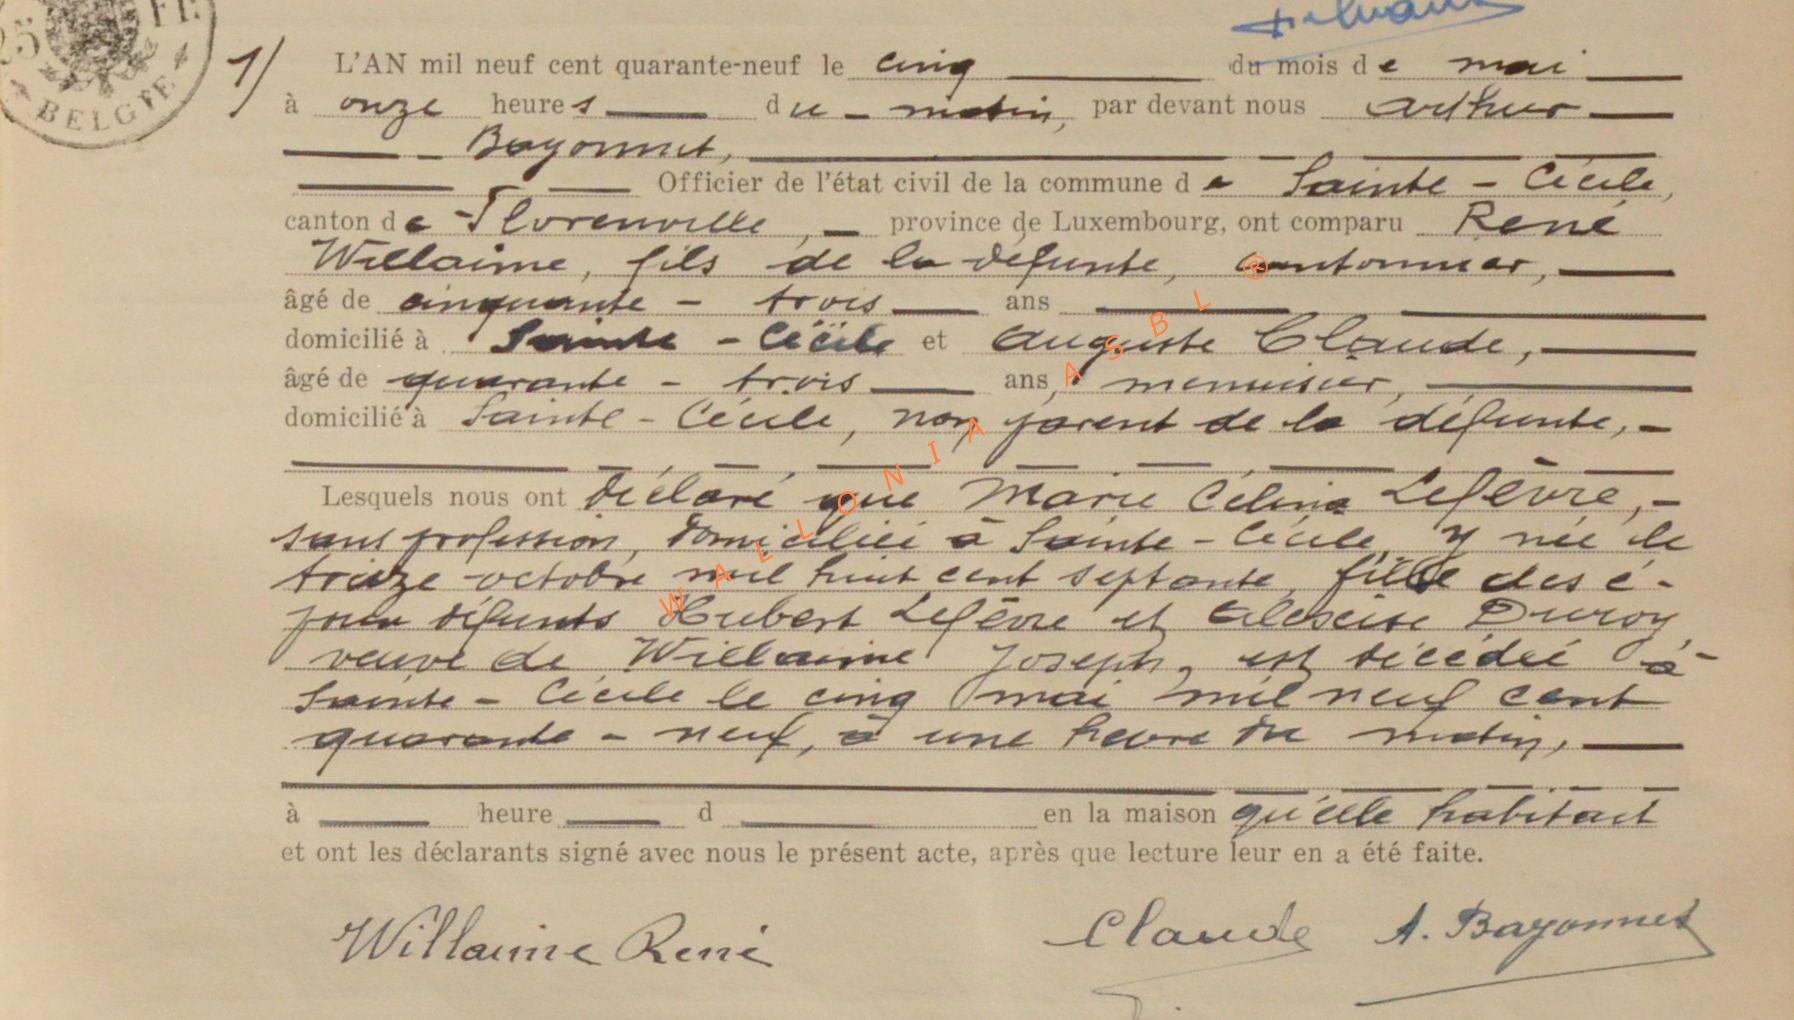 25 FE
BELGIE
1/ L'AN mil neuf cent quarante-neuf le cinq du mois de mai
à onze heures du matin, par devant nous Arthur
Bayonnet,
Officier de l'état civil de la commune de Sainte-Cécile,
canton de Florenville, province de Luxembourg, ont comparu René
Willaime, fils de la défunte, cantonnier,
âgé de cinquante-trois ans
domicilié à Sainte-Cécile et Auguste Claude,
âgé de quarante-trois ans, menuisier,
domicilié à Sainte-Cécile, non parent de la défunte,
Lesquels nous ont déclaré que Marie Célina Lefèvre,
sans profession, domiciliée à Sainte-Cécile, y née le
treize octobre mil huit cent septante, fille des é-
poux défunts Hubert Lefèvre et Duroy
veuve de Willaime Joseph, est décédée à
Sainte-Cécile le cinq mai mil neuf cent
quarante-neuf, à une heure du matin,
à heure d en la maison qu'elle habitait
et ont les déclarants signé avec nous le présent acte, après que lecture leur en a été faite.
Willaime René Claude A. Bayonnet
WALLONIA ASBL ®